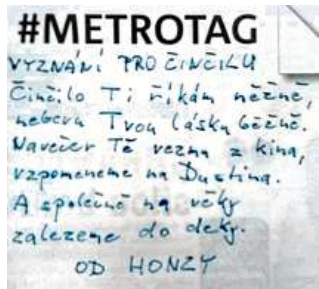 #METROTAG
VYZNÁNÍ PRO ČINČILU
Činčilo Ti říkám něžně,
neberu Tvou lásku běžně.
Navečer Tě vezmu z kina,
vzpomeneme na Dustina.
A společně na věky
zalezeme do deky.
OD HONZY